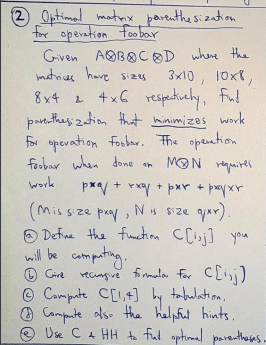 ② Optimal matrix parenthesization
for operation foobar
Given A⊗B⊗C⊗D where the
matrices have sizes 3x10, 10x8,
8x4 & 4x6 respectively, find
parenthesization that minimizes work
for operation foobar. The operation
foobar when done on M⊗N requires
work pxq + rxq + pxr + pxqxr
(M is size pxq, N is size qxr).
ⓐ Define the function C[i,j] you
will be computing.
ⓑ Give recursive formula for C[i,j]
ⓒ Compute C[1,4] by tabulation.
ⓓ Compute also the helpful hints.
ⓔ Use C & HH to find optimal parentheses.